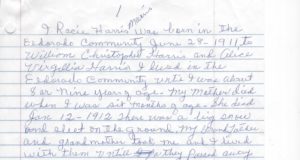 1
Marie
I Racie Harris was born in the
Eldorado Community June 28-1911 to
William Christopher Harris and Alice
Virginia Harris I lived in the
Eldorado Community until I was about
8 or Nine years of age. My Mother died
when I was six months of age. She died
Jan 12-1912 There was a big snow
and sleet on the ground. My Grandfather
and grandmother took me and I lived
with them until they passed away